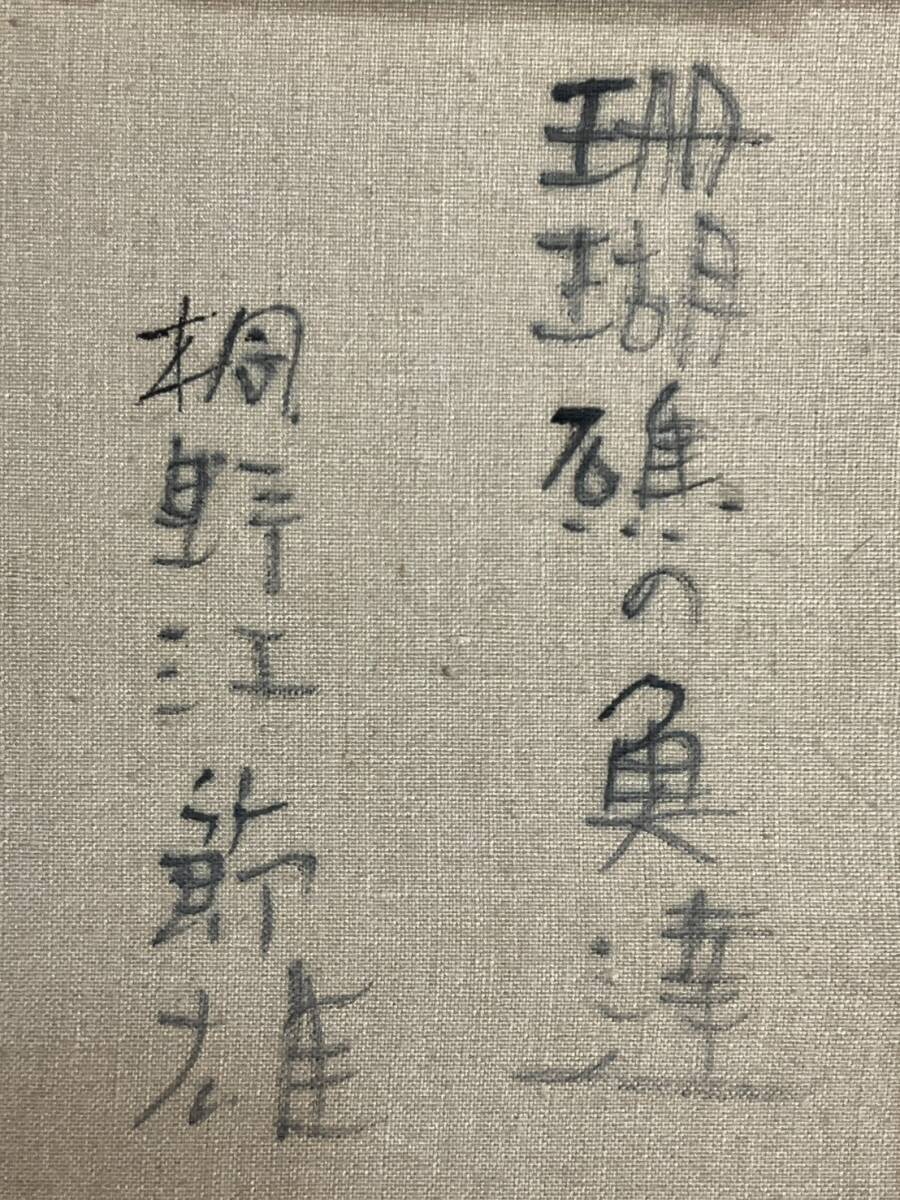 珊瑚礁の魚達
桐野江節雄